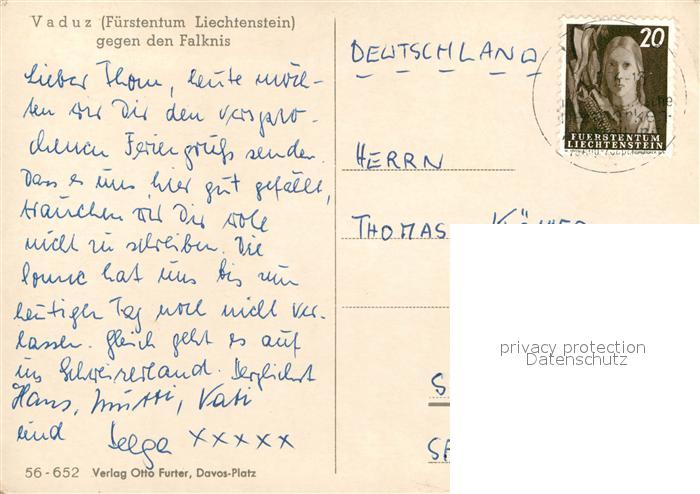 Vaduz (Fürstentum Liechtenstein)
gegen den Falknis
Lieber Thom, heute möch-
ten wir Dir den verspro-
chenen Feriengruß senden.
Dass es uns hier gut gefällt,
brauchen wir Dir wohl
nicht zu schreiben. Die
Sonne hat uns bis zum
heutigen Tag noch nicht ver-
lassen. Gleich geht es auf
ins Schweizerland. Herzlichst
Hans, Mutti, Vati
und Helga xxxxx
56-652 Verlag Otto Furter, Davos-Platz
DEUTSCHLAND
20
FUERSTENTUM
LIECHTENSTEIN
HERRN
THOMAS
privacy protection
Datenschutz